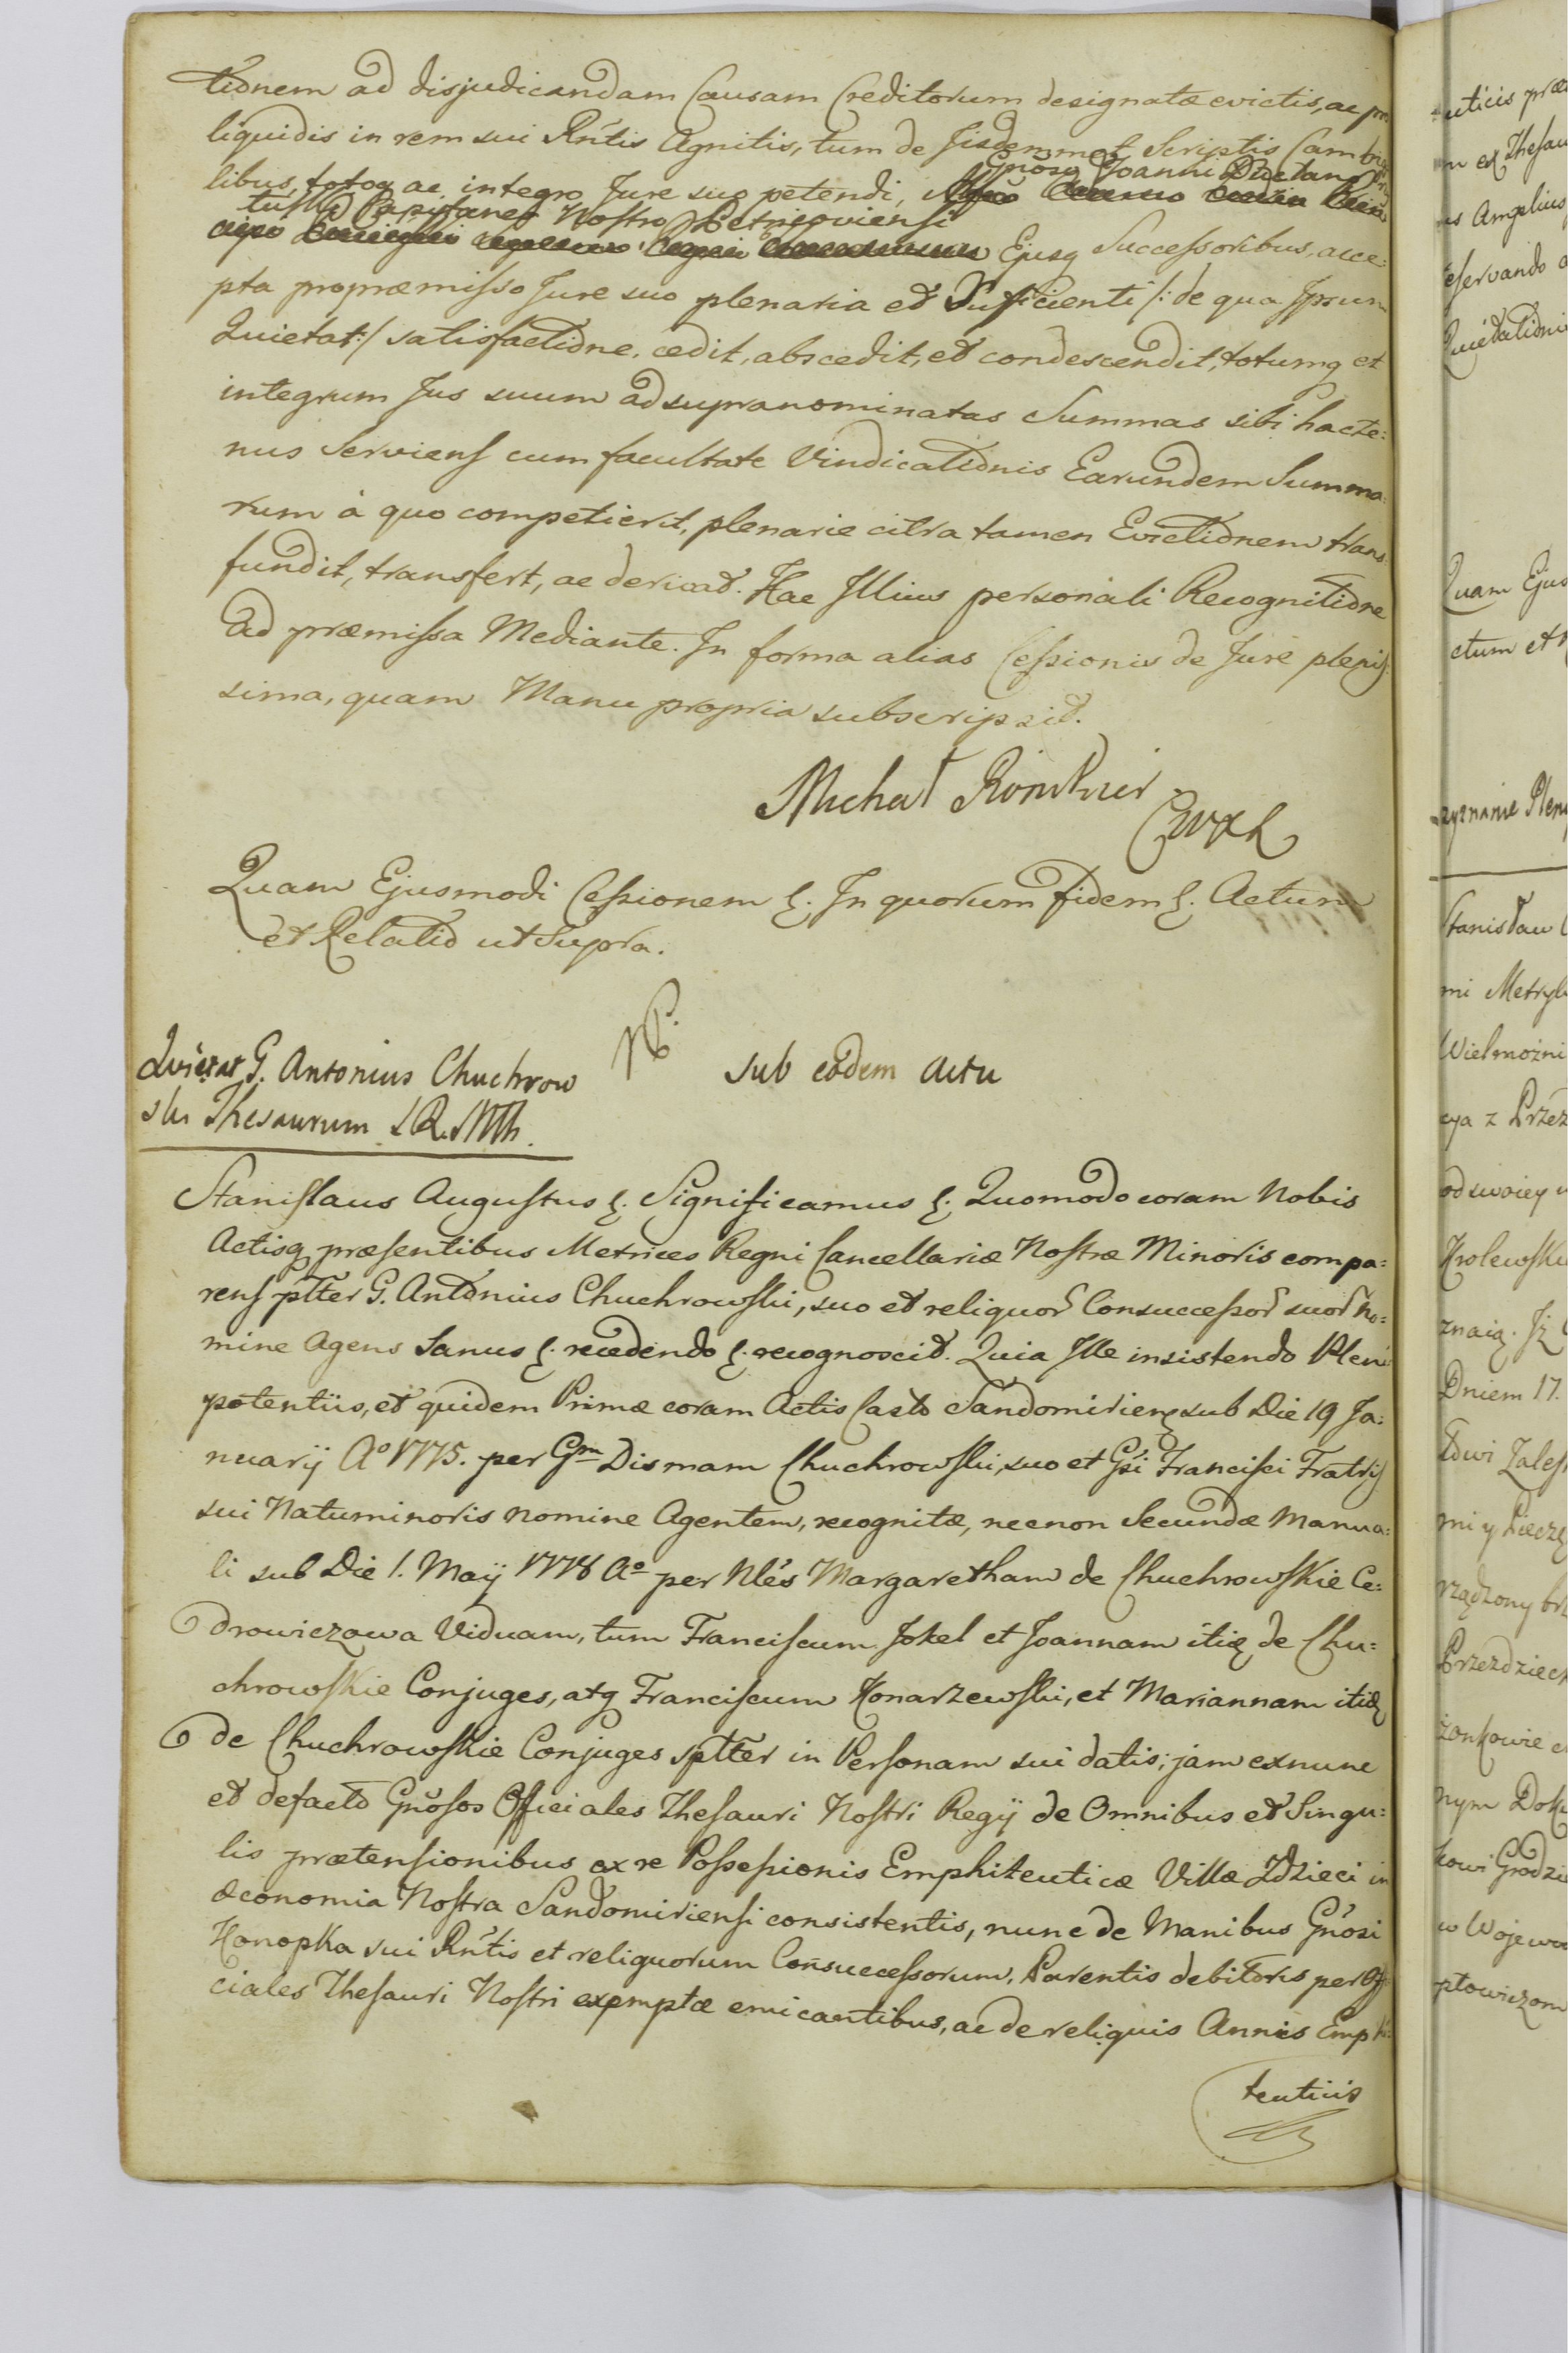 tionem ad disjudicandam Causam Creditorum designatæ evictis, ac pro
liquidis in rem sui Rntis Agnitis, tum de Iisdemmet Scriptis Cambia
libus, totoq ac integro Jure suo petendi, Gnoso Joanni
Capitaneo Nostro Petricoviensi
Ejusq Successoribus, acce:
pta propræmisso Jure suo plenaria et Sufficienti /: de qua Ipsum
Quietat :/ satisfactione, cedit, abscedit, et condescendit, totumq et
integrum Jus suum ad supranominatas Summas sibi hacte:
nus Serviens cum facultate Vindicationis Earundem Summa:
rum à quo competierit, plenarie citra tamen Evictionem trans:
fundit, transfert, ac derivat. Hac Illius personali Recognitione
ad præmissa Mediante. In forma alias Cessionis de Jure plenis:
sima, quam Manu propria subscripsit.
Michał Ronikier
Quam Ejusmodi Cessionem &. In quorum fidem &. Actum
et Relatio ut Supra.
Quietat G. Antonius Chuchrow
ski Thesaurum
sub eodem actu
Stanislaus Augustus &. Significamus &. Quomodo coram Nobis
Actisq præsentibus Metrices Regni Cancellariæ Nostræ Minoris compa:
rens pltter G. Antonius Chuchrowski, suo et reliquor Consuccessor suor No:
mine Agens Sanus &. recedendo &. recognoscit. Quia Ille insistendo Pleni
potentiis, et quidem Primæ coram Actis Castr Sandomirien sub Die 19 Ja:
nuarij Aº 1775. per Gm Dismam Chuchrowski, suo et Gsi Francisci Fratris
sui Natuminoris nomine Agentem, recognitæ, necnon Secundæ Manua:
li sub Die 1. Maij 1778 Aº per Nles Margaretham de Chuchrowskie Ce:
drowiczowa Viduam, tum Franciscum Jokel et Joannam itiq de Chu:
chrowskie Conjuges, atq Franciscum Konarzewski, et Mariannam itiq
de Chuchrowskie Conjuges spltter in Personam sui datis; jam exnunc
et defacto Gnosos Officiales Thesauri Nostri Regij de Omnibus et Singu:
lis prætensionibus ex re Possessionis Emphiteuticæ Villæ Zdzieci in
œconomia Nostra Sandomiriensi consistentis, nunc de Manibus Gnosi
Konopka sui Rntis et reliquorum Consuccessorum, Parentis debitoris per Offi
ciales Thesauri Nostri exemptæ emicantibus, ac de reliquis Annis Emphi:
teuticis